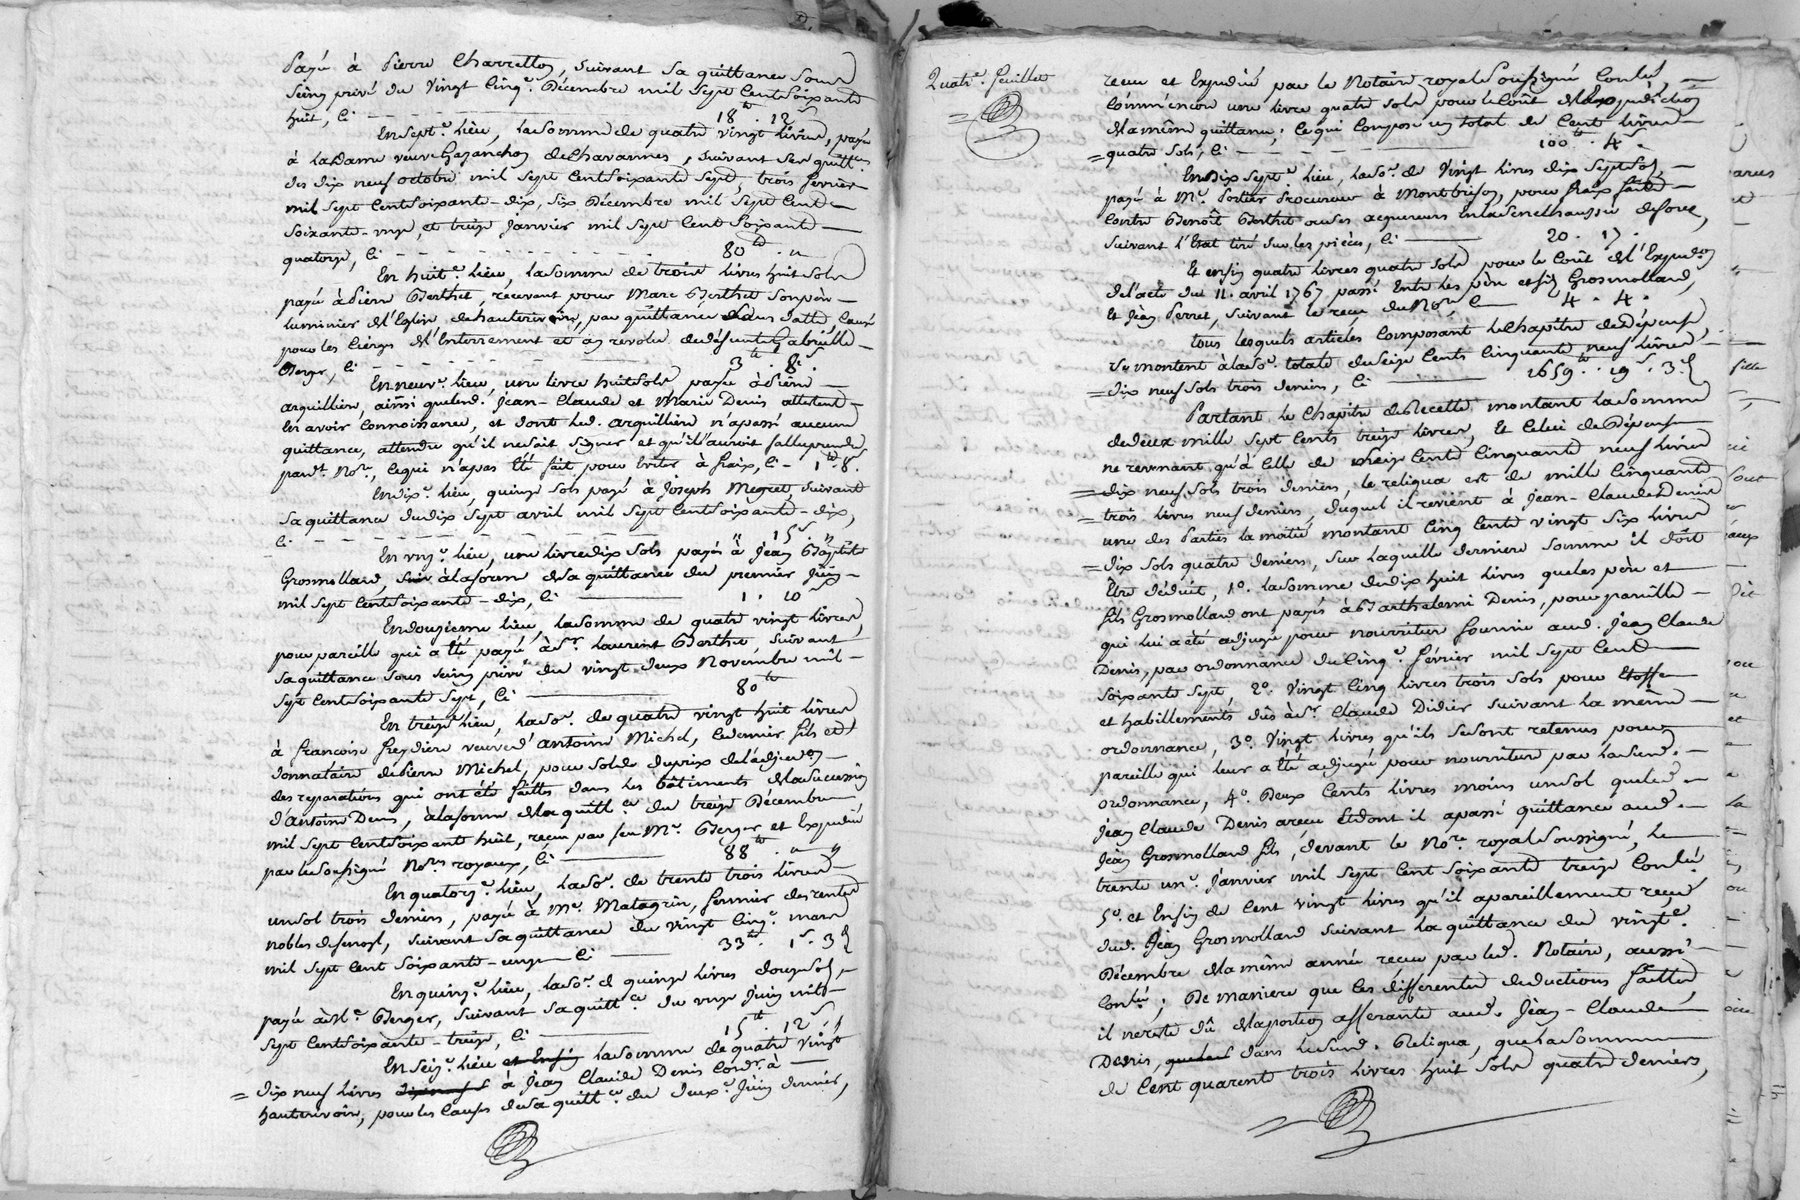 Payé à Pierre Charretton, suivant sa quittance sous
seing privé du vingt cinq.e Décembre mil sept cent soixante
huit, ci 18.lt 12.s
En sept.e lieu, la somme de quatre vingt livres, payée
à la Dame veuve Gazanchon de Chavannes, suivant ses quitt.ces
des dix neuf octobre mil sept cent soixante sept, trois fevrier
mil sept cent soixante-dix, six Décembre mil sept cent
soixante-onze, et treize Janvier mil sept cent soixante
quatorze, ci 80.lt "
En huit.e lieu, la somme de trois livres huit sols
payé à Pierre Berthet, recevant pour Marc Berthet son père
luminier de l'Eglise de hauterivoire, par quittance sans datte, causé
pour les cierges de l'Enterrement et an revolu de defunte Gabrielle
Berger, ci 3.lt 8.s
En neuv.e lieu, une livre huit sols, payée à Pierre
arquilliere, ainsi que lesd. Jean-Claude et Marie Denis attestent
en avoir connoissance, et dont led. arquilliere n'a passé aucune
quittance, attendu qu'il ne sait signer et qu'il auroit fallu prendre
pard.t No.re, ce qui n'a pas été fait pour eviter à fraix, ci - 1.lt 8.s
En dix.e lieu, quinze sols payé à Joseph Megret, suivant
sa quittance du dix sept avril mil sept cent soixante-dix,
ci " 15.s "
En onz.e lieu, une livre dix sols payés à Jean Baptiste
Grosmolland, à la forme de sa quittance du premier Juin
mil sept cent soixante-dix, ci 1. 10.s
En douzieme lieu, la somme de quatre vingt livres,
pour pareille qui a été payé à S.r Laurent Berthet, suivant
sa quittance sous seing privé du vingt deux Novembre mil
sept cent soixante sept, ci 80.lt
En treiz.e lieu, la so.e de quatre vingt huit livres
à francoise freydiere veuve d'antoine Michel, ce dernier fils et
donnataire de Pierre Michel, pour solde du prix de l'adjud.on
des reparations qui ont été faittes dans les bâtiments de la succession
d'antoine Denis, à la forme de la quitt.ce du treize Décembre
mil sept cent soixante huit, reçue par feu M.e Berger et Expedié
par le soussigné No.res royaux, ci 88.lt " "
En quatorz.e lieu, la so.e de trente trois livres
un sol trois deniers, payée à M.e Matagrin, fermier des rentes
nobles de, suivant sa quittance du vingt cinq.e mars
mil sept cent soixante-onze ci 33.lt 1.s 3.d
En quinz.e lieu, la so.e de quinze livres douze sols,
payé à M.e Berger, suivant sa quitt.ce du onze Juin mil
sept cent soixante-treize, ci 15.lt 12.s
En seiz.e lieu et Enfin la somme de quatre vingt
= dix neuf livres à Jean Claude Denis Cord.r à
hauterivoire, pour les causes de sa quitt.ce du deux.e Juin dernier,
Quatr.e feuillet
recue et Expedié par le Notaire royal soussigné Conlé,
commencer une livre quatre sols pour le Coût de l'Expedition
de la même quittance; ce qui compose un total de Cent livres
= quatre sols, ci 100.lt 4.s
En dix sept.e lieu, la so.e de vingt livres dix sept sols,
payé à M.e Portier Procureur à Montbrison, pour fraix faits
contre Benoît Berthet ou ses acquereurs en la senechaussée de forez,
suivant l'Etat tiré sur les pièces, ci 20. 17.
Et enfin quatre livres quatre sols pour le Coût de l'Exped.on
de l'acte du 11. avril 1767 passé Entre les père et fils Grosmolland,
Et Jean Perret, suivant le reçu du No.re, ci 4. 4.
tous lesquels articles composant le Chapitre de Dépense,
se montent à la so.e totale de seize cents cinquante neuf livres
= dix neuf sols trois deniers, ci 1659.lt 19.s 3.d
Partant le Chapitre de Recette montant la somme
de deux mille sept cents treize livres, Et Celui de Dépense
ne revenant qu'à Celle de seize Cents Cinquante neuf livres
= dix neuf sols trois deniers, le reliqua est de mille Cinquante
= trois livres neuf deniers, duquel il revient à Jean-Claude Denis
une des Parties la moitié montant Cinq Cents vingt six livres
= dix sols quatre deniers, sur laquelle derniere somme il doit
Être déduit, 1.o la somme de dix huit livres que les père et
fils Grosmolland ont payés à Barthelemi Denis, pour pareille
qui lui a été adjugée pour nourriture fournie aud. Jean Claude
Denis, par ordonnance du Cinq.e février mil sept Cent
soixante sept, 2.o vingt Cinq livres trois sols pour Etoffe
et habillements dûs à S.r Claude Didier suivant la même
ordonnance, 3.o vingt livres qu'ils se sont retenus pour
pareille qui leur a été adjugée pour nourriture par la susd.
ordonnance, 4.o Deux Cents livres moins un sol que led.
Jean Claude Denis a reçu Et dont il a passé quittance aud.
Jean Grosmolland fils, devant le No.re royal soussigné, le
trente un.e Janvier mil sept Cent soixante treize Conlé.
5.o et Enfin de Cent vingt livres qu'il a pareillement reçue
dud. Jean Grosmolland suivant la quittance du vingt.e
Décembre de la même année recue par led. Notaire, aussi
Conlé; De maniere que ces differentes deductions faittes
il ne reste dû de la portion afferante aud. Jean-Claude
Denis, dans le susd. Reliqua, que la somme
de Cent quarente trois livres huit sols quatre deniers,